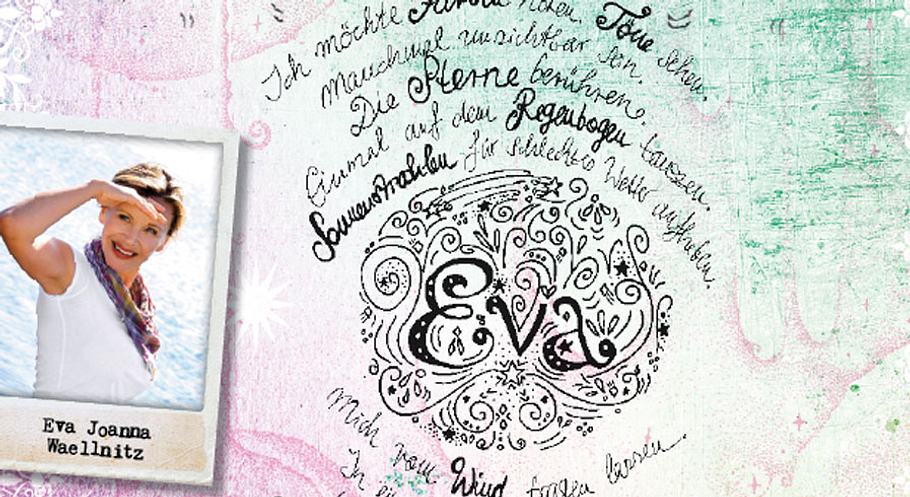 Ich möchte hören. Töne sehen.
Manchmal unsichtbar sein.
Die Sterne berühren.
Einmal auf dem Regenbogen tanzen.
Sonnenstrahlen für schlechtes Wetter aufheben.
Eva
Mich vom Wind tragen lassen.
Eva Joanna
Waellnitz